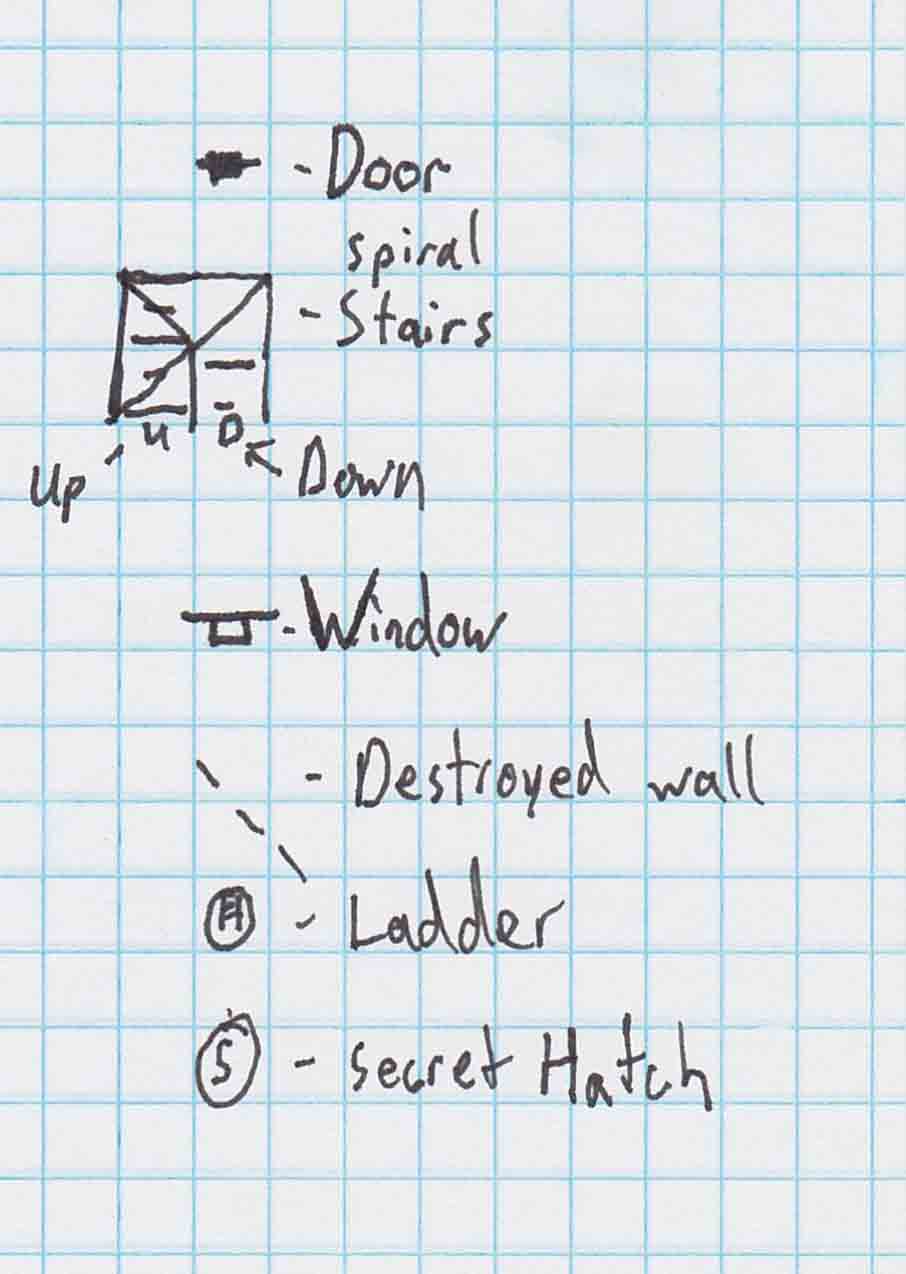 - Door
spiral
- Stairs
U D
Up
Down
- Window
- Destroyed wall
- Ladder
S - secret Hatch